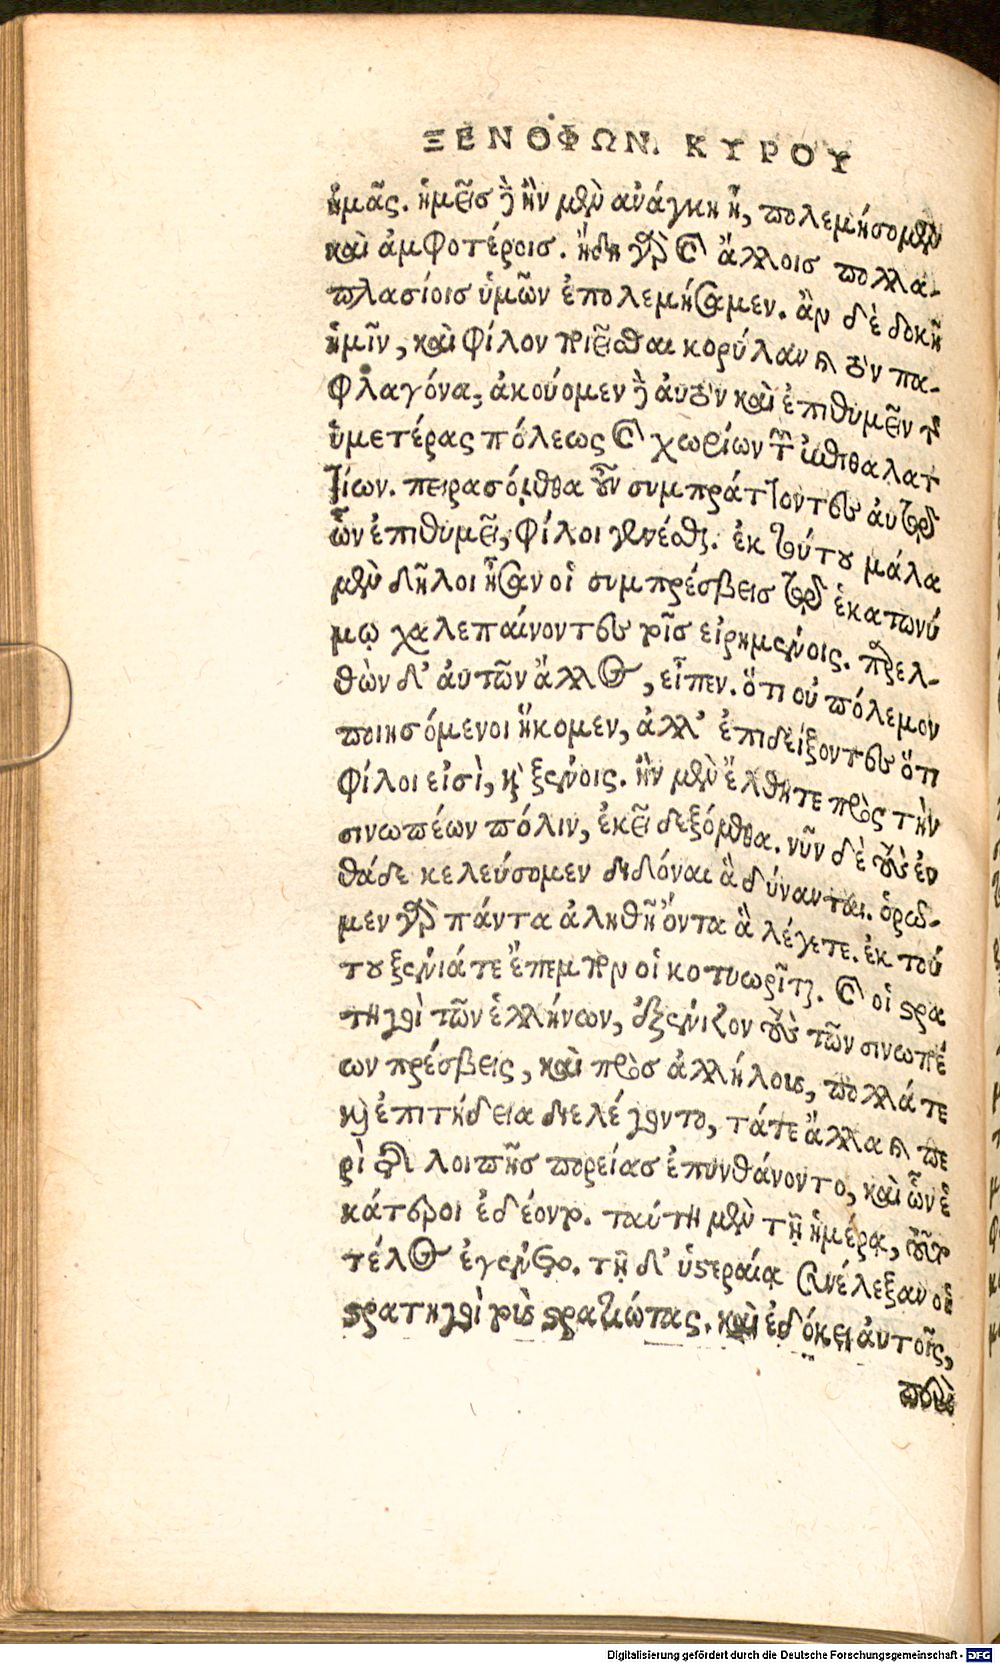 ΞΕΝΟΦΩΝ. ΚΥΡΟΥ
ἡμᾶς. ἡμεῖσ δὲ ἢν μὲν ἀνάγκη ᾖ, πολεμήσομεν
καὶ ἀμφοτέροισ. ἤδη γὰρ καὶ ἄλλοισ πολλα-
πλασίοισ ὑμῶν ἐπολεμήσαμεν. ἂν δὲ δοκῇ
ἡμῖν, καὶ φίλον ποιεῖσθαι κορύλαν καὶ τὸν πα-
φλαγόνα, ἀκούομεν δὲ αὐτὸν καὶ ἐπιθυμεῖν τῆς
ὑμετέρας πόλεως καὶ χωρίων τῶν ἐπιθαλατ
τίων. πειρασόμεθα οὖν συμπράττοντες αὐτῷ
ὧν ἐπιθυμεῖ, φίλοι γενέσθαι. ἐκ τούτου μάλα
μὲν δῆλοι ἦσαν οἱ συμπρέσβεισ τῷ ἑκατωνύ
μῳ χαλεπαίνοντες τοῖσ εἰρημένοις. παρελ-
θὼν δ' αὐτῶν ἄλλος, εἶπεν. ὅτι οὐ πόλεμον
ποιησόμενοι ἥκομεν, ἀλλ' ἐπιδείξοντες ὅτι
φίλοι εἰσὶ, καὶ ξένοις. ἢν μὲν ἔλθητε πρὸς τὴν
σινωπέων πόλιν, ἐκεῖ δεξόμεθα. νῦν δὲ τοὺς ἐν
θάδε κελεύσομεν διδόναι ἃ δύνανται. ὁρῶ-
μεν γὰρ πάντα ἀληθῆ ὄντα ἃ λέγετε. ἐκ τού
του ξένιά τε ἔπεμπον οἱ κοτυωρῖται. καὶ οἱ στρα
τηγοὶ τῶν ἑλλήνων, ἐξένιζον τοὺς τῶν σινωπέ
ων πρέσβεις, καὶ πρὸσ ἀλλήλους, πολλά τε
καὶ ἐπιτήδεια διελέγοντο, τά τε ἄλλα καὶ πε
ρὶ τῆς λοιπῆσ πορείασ ἐπυνθάνοντο, καὶ ὧν ἑ
κάτεροι ἐδέοντο. ταύτῃ μὲν τῇ ἡμέρᾳ, τοῦτο
τέλος ἐγένετο. τῇ δ' ὑστεραίᾳ συνέλεξαν οἱ
στρατηγοὶ τοὺς στρατιώτας. καὶ ἐδόκει αὐτοῖς,